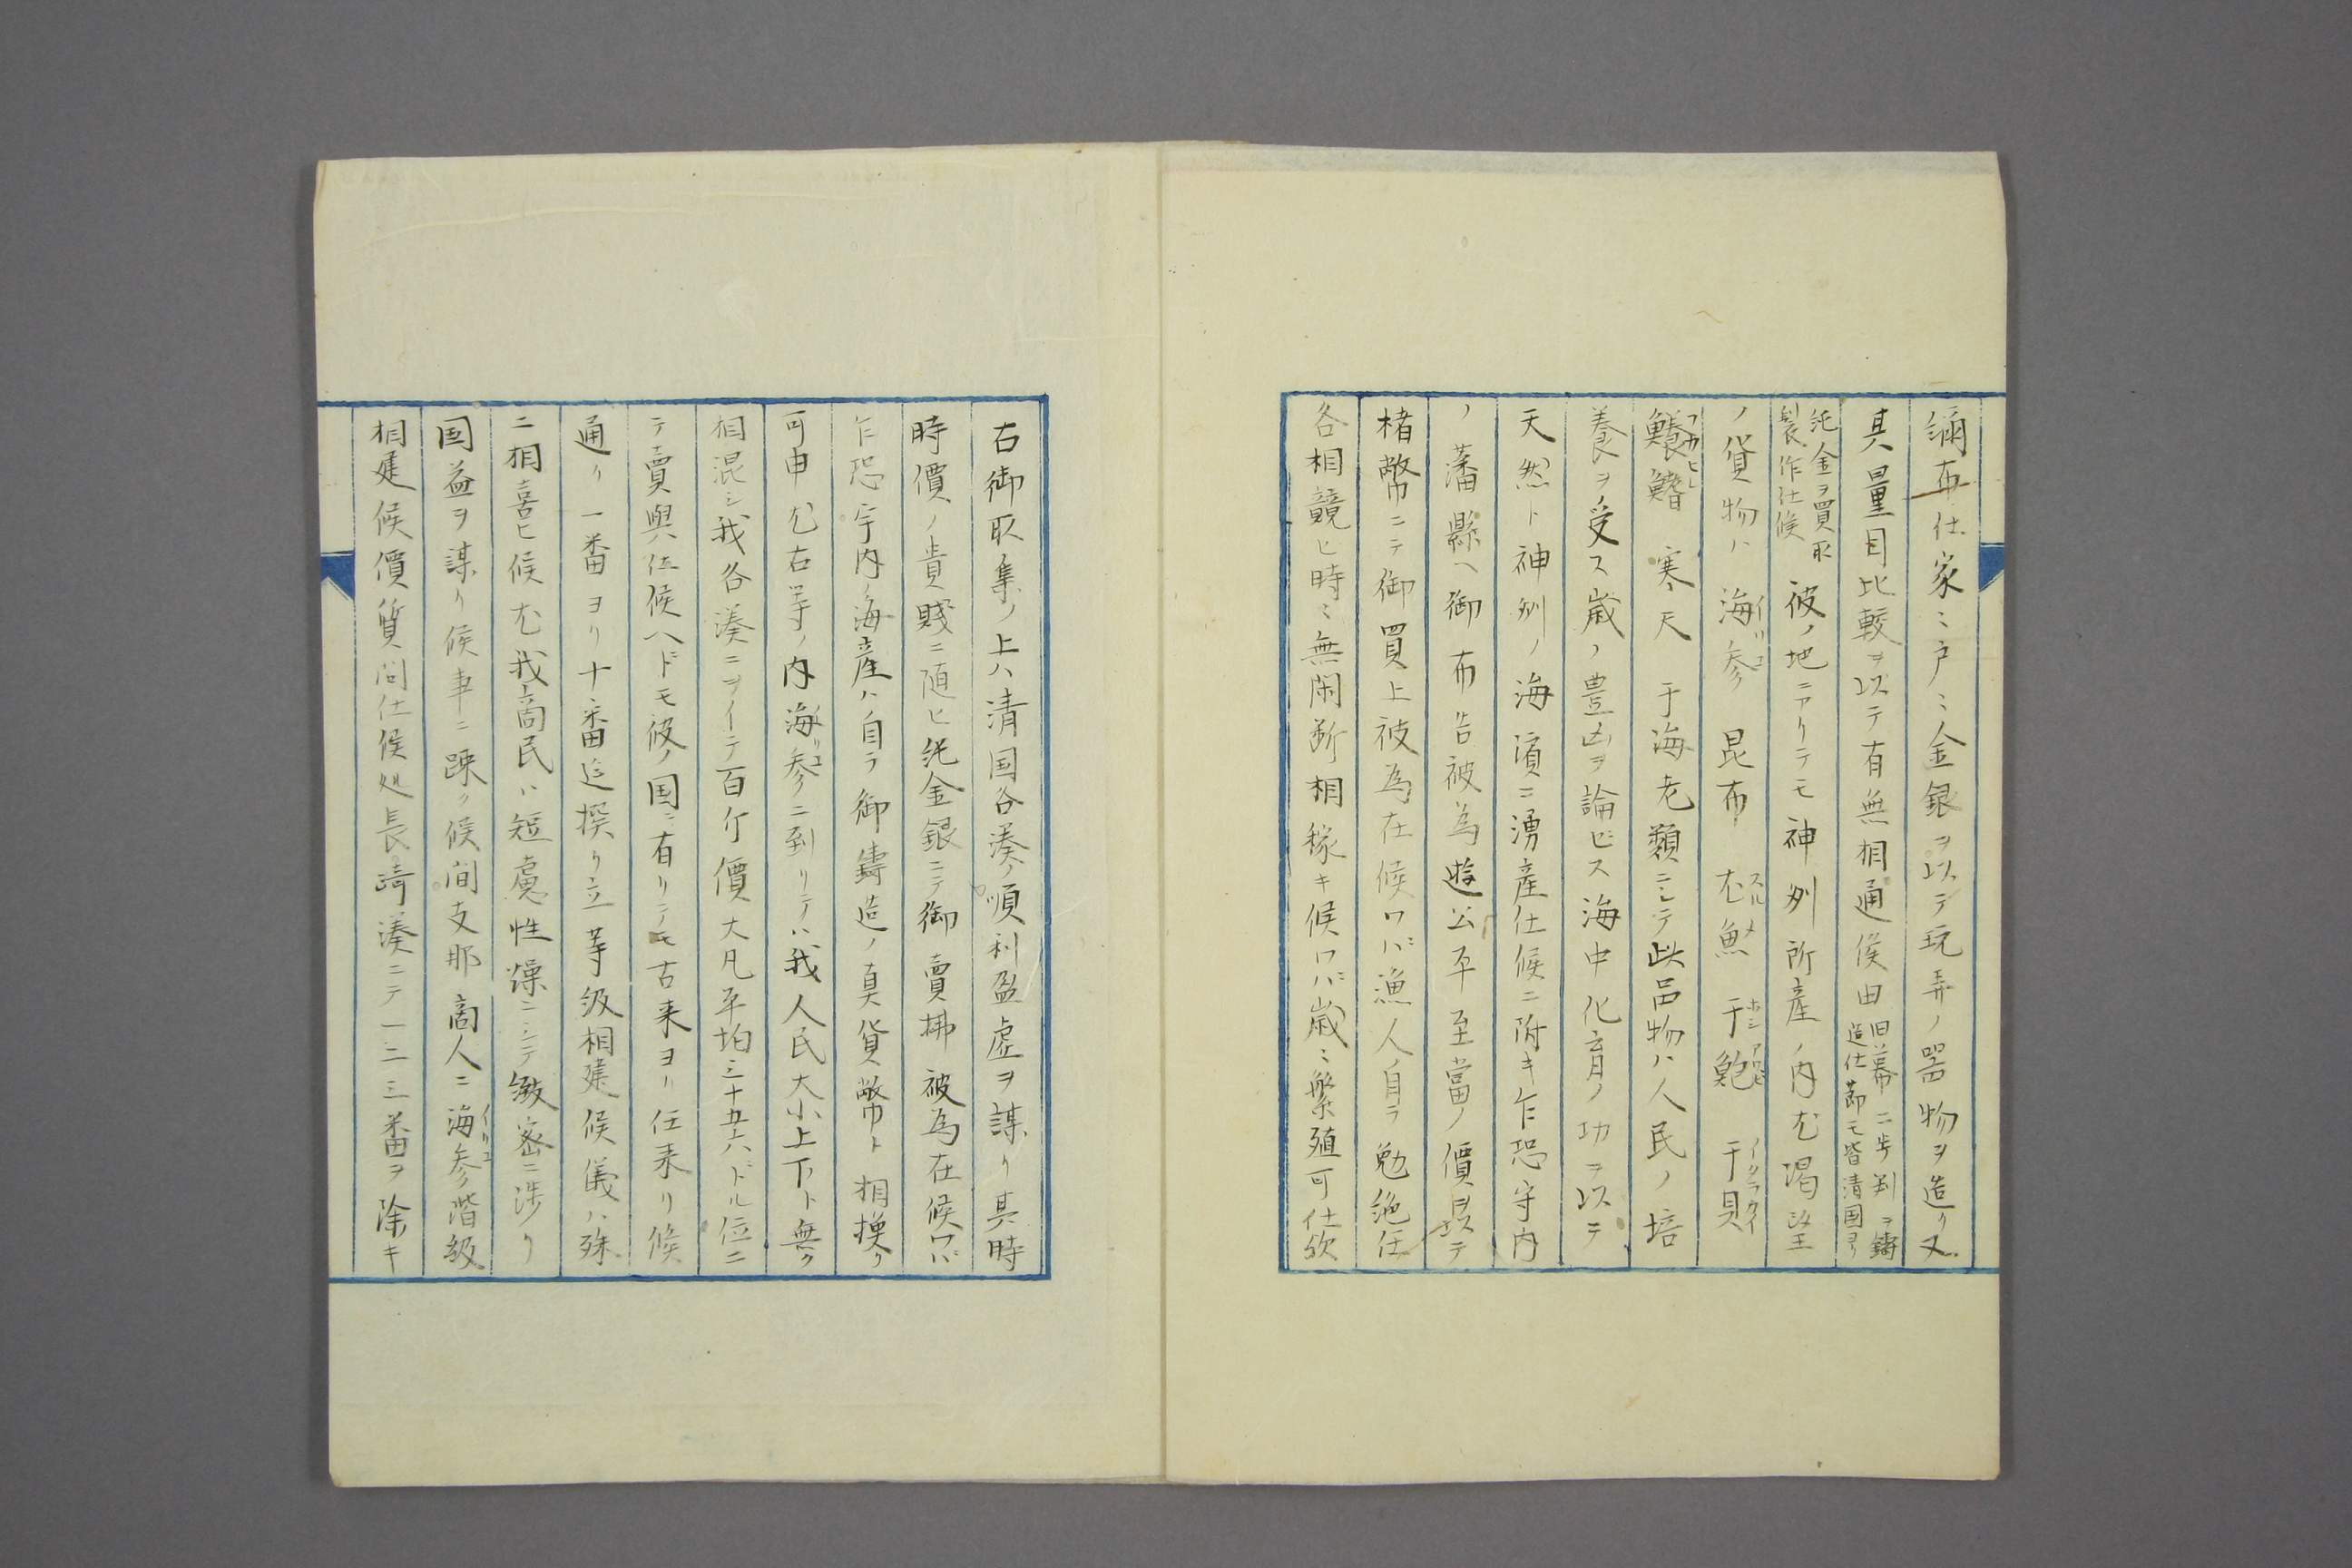 彌布仕家〻戸〻金銀ヲ以テ玩弄ノ器物ヲ造リ又
其量目比較ヲ以テ有無相通候由旧幕二歩判ヲ鋳造仕節モ皆清国ヨリ
純金ヲ買取製作仕候彼ノ地ニアリテモ神州所産ノ内尤渇望
ノ貨物ハ海参イリコ昆布尤魚スルメ干鮑ホシアワビ干貝イクラカイ
鱶鰭フカヒレ寒天干海老類ニシテ此品物ハ人民ノ培
養ヲ受ス歳ノ豊凶ヲ論ゼス海中化育ノ功ヲ以テ
天然ト神州ノ海濱ニ湧産仕候ニ附キ乍恐宇内
ノ藩縣ヘ御布告被為遊公平至當ノ價以テ
楮幣ニテ御買上被為在候ワバ漁人自ラ勉強仕
各相競ヒ時〻無間断相稼キ候ワバ歳〻繁殖可仕欤
右御取集ノ上ハ清国各湊ノ順利盈虚ヲ謀リ其時
時價ノ貴賎ニ随ヒ純金銀ニテ御賣拂被為在候ワバ
乍恐宇内ノ海産ハ自ラ御鋳造ノ真貨幣ト相換リ
可申尤右等ノ内海参イリコニ到リテハ我人民大小上下ト無ク
相混シ我各湊ニヲイテ百斤價大凡平均三十五六ドル位ニ
テ賣與仕候ヘドモ彼ノ国ニ有リテモ古来ヨリ仕来リ候
通リ一番ヨリ十番迄撰リ立等級相建候儀ハ殊
ニ相喜ヒ候尤我商民ハ短慮性燥ニシテ緻密ニ渉リ
国益ヲ謀リ候事ニ疎ク候間支那商人ニ海参イリコ階級
相建候價質問仕候処長崎湊ニテ一二三番ヲ除キ